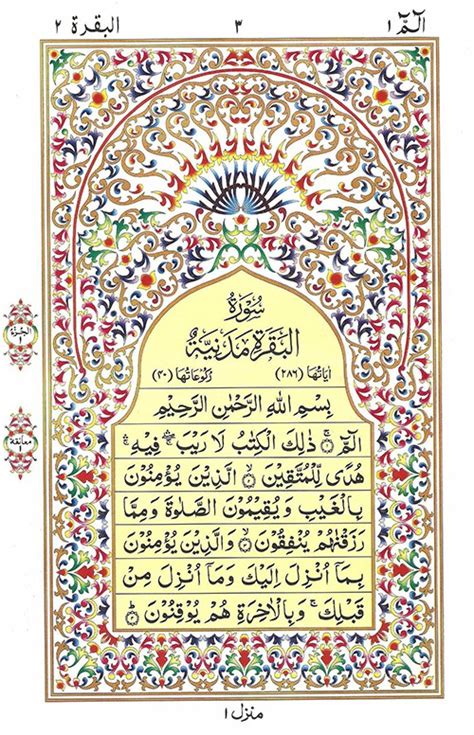 الٓمّٓ ١ ٣ البقرة ٢
سُوْرَةُ
الْبَقَرَةِ مَدَنِيَّةٌ
اٰيَاتُهَا (٢٨٦) رُكُوْعَاتُهَا (٤٠)
بِسْمِ اللّٰهِ الرَّحْمٰنِ الرَّحِيْمِ
الٓمّٓ ۚ ذٰلِكَ الْكِتٰبُ لَا رَيْبَ ۛ فِيْهِ ۛ
هُدًى لِّلْمُتَّقِيْنَ ۙ الَّذِيْنَ يُؤْمِنُوْنَ
بِالْغَيْبِ وَ يُقِيْمُوْنَ الصَّلٰوةَ وَ مِمَّا
رَزَقْنٰهُمْ يُنْفِقُوْنَ ۙ وَالَّذِيْنَ يُؤْمِنُوْنَ
بِمَاۤ اُنْزِلَ اِلَيْكَ وَ مَاۤ اُنْزِلَ مِنْ
قَبْلِكَ ۚ وَبِالْاٰخِرَةِ هُمْ يُوْقِنُوْنَ ۗ
الجزء ١
معانقة ١
منزل ١